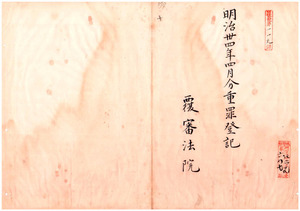 明治卅四年四月分重罪登記
覆審法院